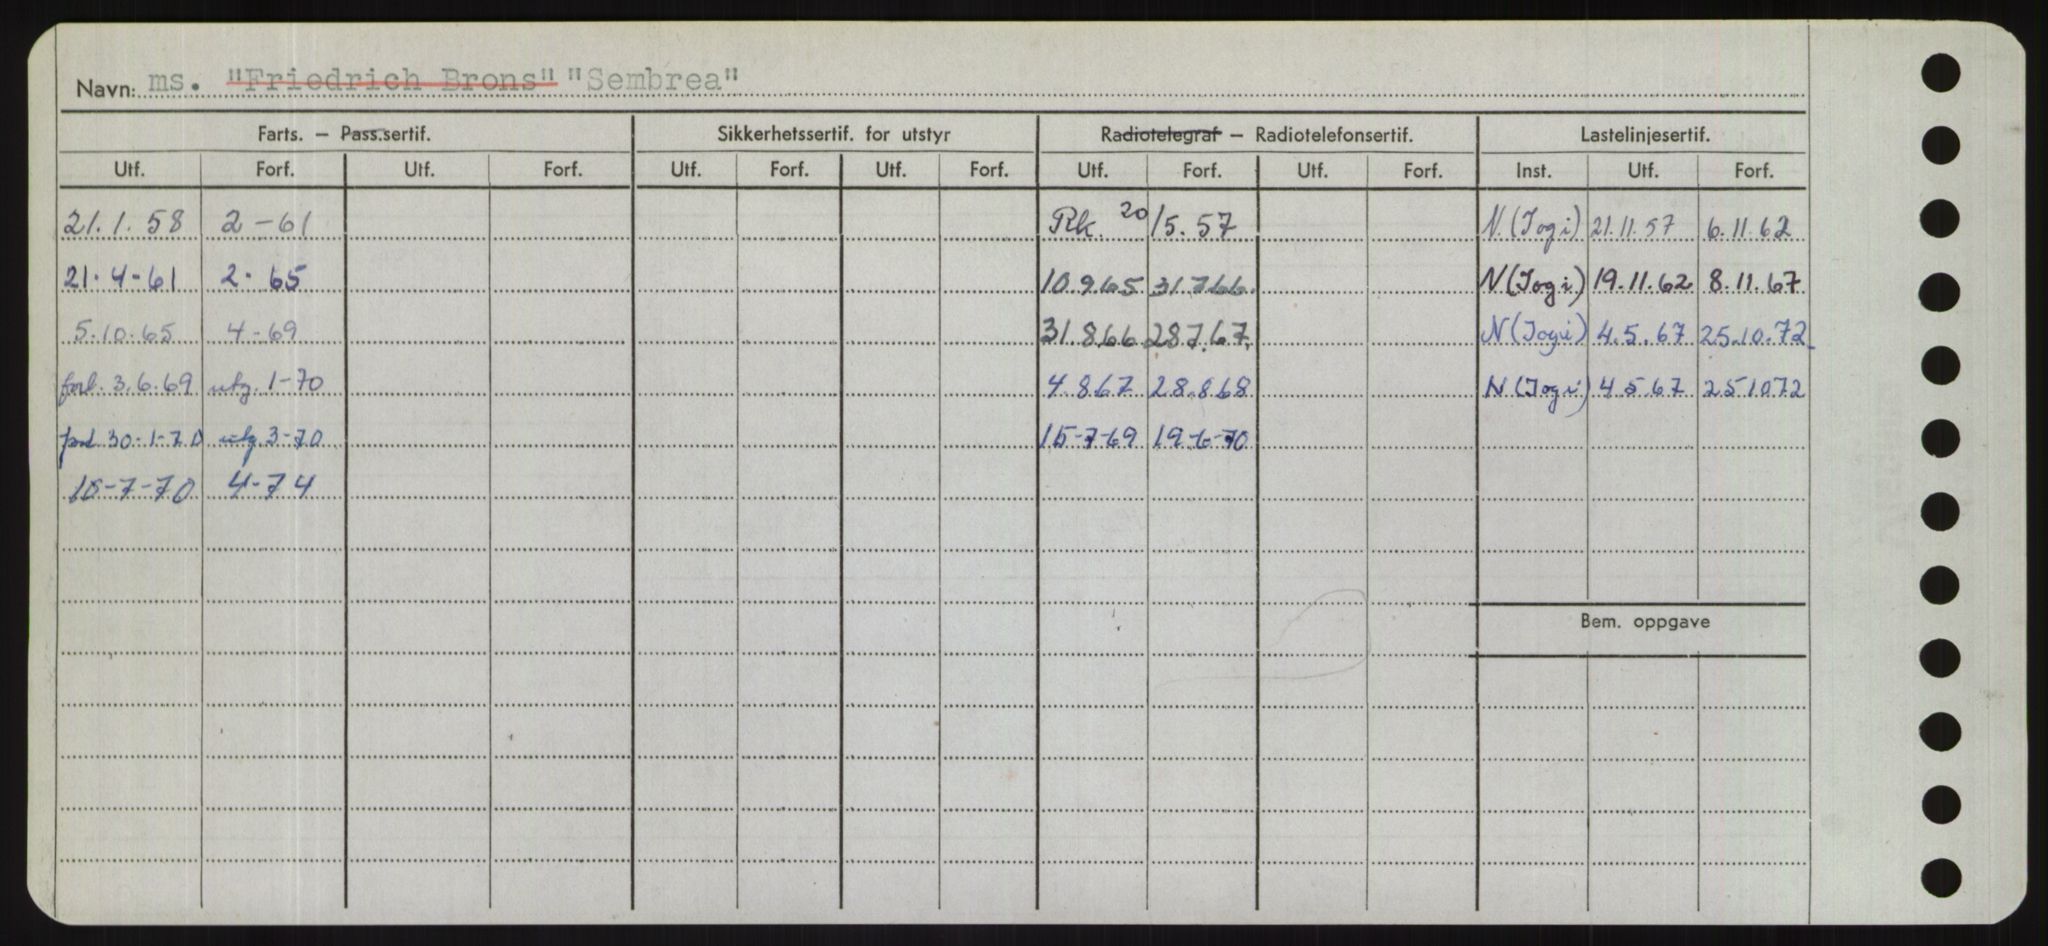 Navn: ms. "Friedrich Brons" "Sembrea"
Farts. — Pass.sertif. Sikkerhetssertif. for utstyr Radiotelegraf — Radiotelefonsertif. Lastelinjesertif.
Utf. Forf. Utf. Forf. Utf. Forf. Utf. Forf. Utf. Forf. Utf. Forf. Inst. Utf. Forf.
21.1.58 2-61 Rk. 20/5.57 N.(Jogi) 21.11.57 6.11.62
21.4.61 2.65 10.9.65 31.7.66. N(Jogi) 19.11.62 8.11.67
5.10.65 4-69 31.8.66 28.7.67. N(Jogi) 4.5.67 25.10.72
forl. 3.6.69 utg. 1-70 4.8.67 28.8.68 N(Jogi) 4.5.67 25.10.72
forl 30-1-70 utg 3-70 15-7-69 19-6-70
4-74
Bem. oppgave